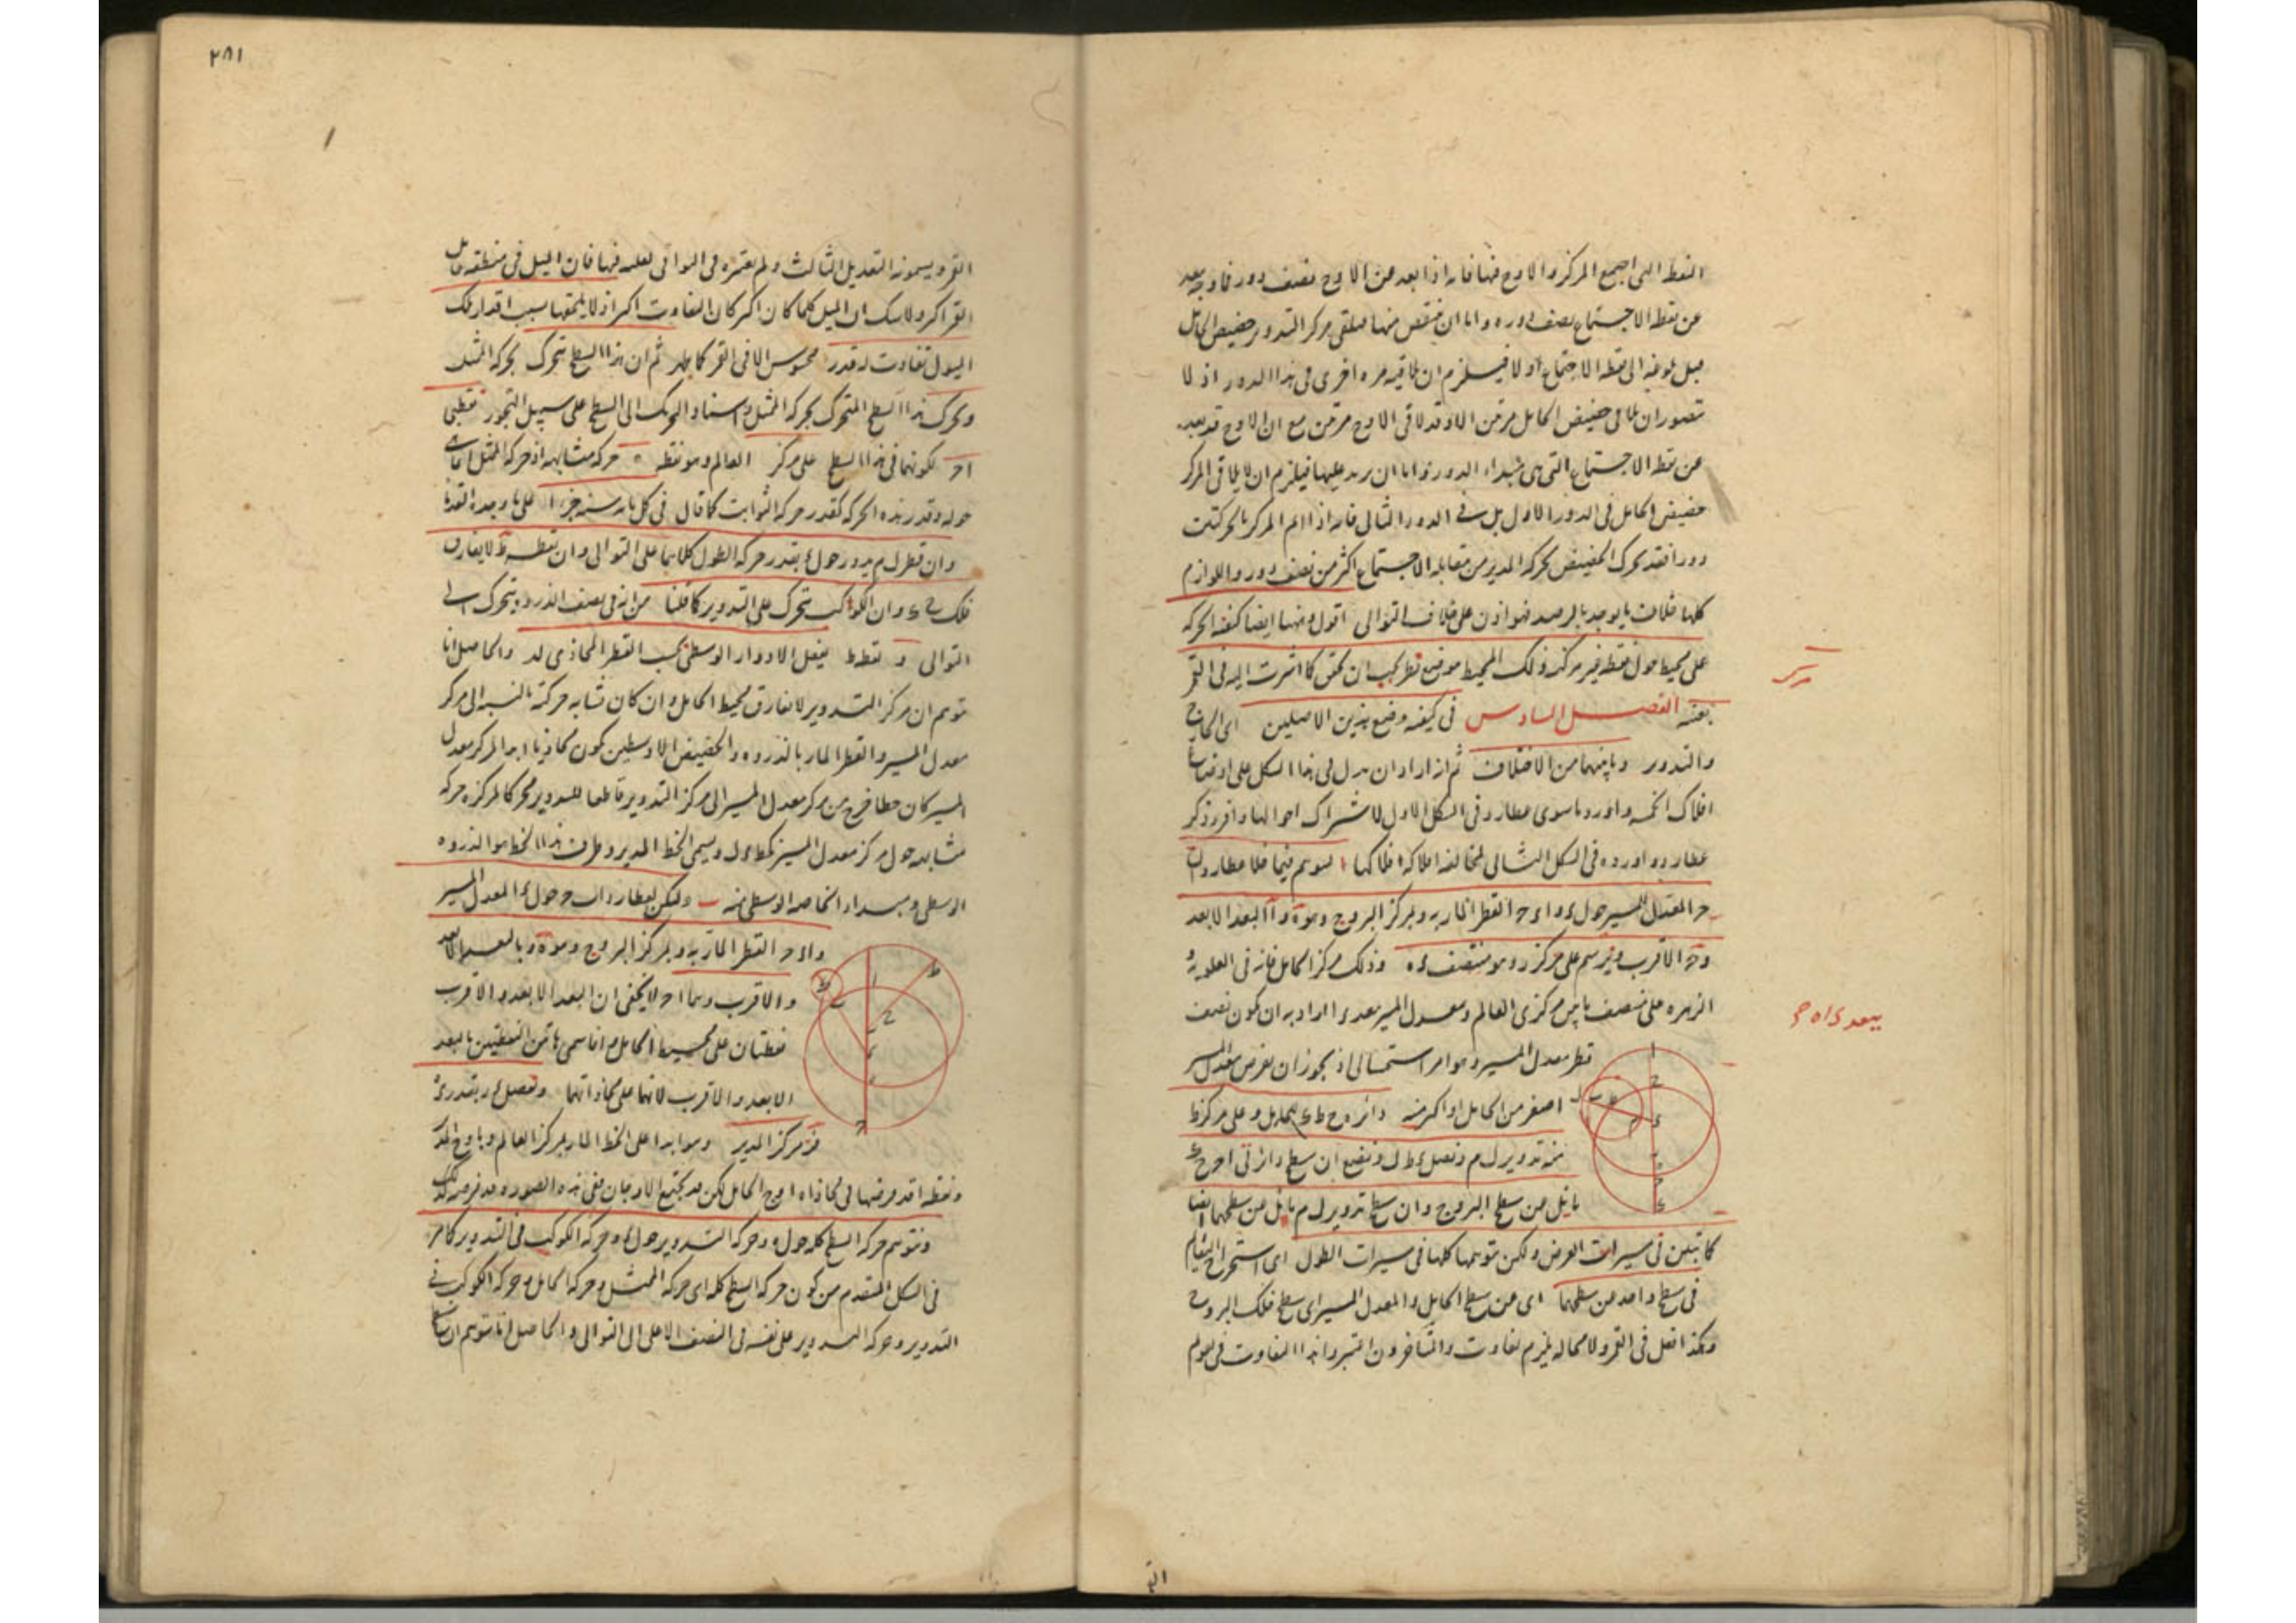 النقطة التى اجتمع المركز والاوج فيها فانه اذا بعد من الاوج نصف دور فاوجه بعد
عن نقطة الاجتماع نصف دوره واما ان ينقص منها فيلقى مركز التدوير حضيض الحامل
قبل بلوغه الى نقطة الاجتماع اولا فيلزم ان يلاقيه مره اخرى فى هذا الدور اذ لا
يتصور ان يلاقى حضيض الحامل مرتين الا وقد لاقى الاوج مرتين مع ان الاوج قد بعد
عن نقطة الاجتماع التى هى مبداء الدورة واما ان يزيد عليها فيلزم ان لا يلاقى المركز
حضيض الحامل فى الدور الاول بل فى الدور الثانى فانه اذا اتم المركز بالحركتين
دورا فقد تحرك الحضيض بحركة المدير من مقابلة الاجتماع اكثر من نصف دور واللوازم
كلها خلاف ما يوجد بالرصد فهو اذن على خلاف التوالى اقول ومنها ايضا كيفية الحركة
على محيط حول نقطة غير مركز ذلك المحيط موضع نظر يجب ان يحقق كما اشرت اليه فى القمر
بعينه الفصل السادس فى كيفية وضع هذين الاصلين اى الخارج
والتدوير وما بينهما من الاختلاف ثم اراد ان يدل فى هذا الشكل على اوضاع
افلاك الخمسة واورد ما سوى عطارد فى الشكل الاول لاشتراك احوالها وافرد ذكر
عطارد واورده فى الشكل الثانى لمخالفة افلاكه افلاكها فليتوهم فيما خلا عطارد اب
ح المعدل للمسير حول ء و ا ء ح القطر المار به وبمركز البروج وهو ه و ا البعد الابعد
و ح الاقرب ونرسم على مركز ز وهو منتصف ء ه وذلك مركز الحامل فانه فى العلوية و
الزهرة على منتصف ما بين مركزى العالم ومعدل المسير ببعد ء ا اراد به ان يكون نصف
قطر معدل المسير وهو امر استحسانى اذ يجوز ان يفرض معدل المسير
اصغر من الحامل او اكبر منه دائرة ح ط ى للحامل وعلى مركز ط
منه تدوير ل م ونصل ء ط ل ونضع ان سطح دائرتى ا ب ح ح ط ى
مائل من سطح البروج وان سطح تدوير ل م مائل من سطحهما ايضا
كما تبين فى مسيرات العرض ولكن نتوهمها كلها فى مسيرات الطول اى استخراج التقاويم
فى سطح واحد من سطحها اى من سطح الحامل والمعدل المسير اى سطح فلك البروج
وهكذا نفعل فى القمر ولا محالة يلزم تفاوت والمتاخرون اعتبروا هذا التفاوت فى تقويم
القمر
ببعد ء ا ه ح
٢٨١
القمر ويسمونه التعديل الثالث ولم يعتبره فى البواقى لقلته فيها فان الميل فى منطقة مايل
القمر اكبر ولا شك ان الميل كلما كان اكبر كان التفاوت اكبر اذ لا يلحقها بسبب اقدار تلك
الميول تفاوت له قدر محسوس الا فى القمر كما يظهر ثم ان هذا السطح يتحرك بحركة الممثل
وتحرك هذا السطح المتحرك بحركة الممثل واسناد الحركة الى السطح على سبيل التجوز نقطتى
ا ح لكونهما فى هذا السطح على مركز العالم وهو نقطة ه حركة متشابهة اذ حركة الممثل
حوله وقدر هذه الحركة كقدر حركة الثوابت كما قال فى كل مائة سنة جزءا على ما وجده القدماء
وان قطر ل م يدور حول ء بقدر حركة الطول كلاهما على التوالى وان نقطة ط لا يفارق
فلك ح ى وان الكوكب يتحرك على التدوير كما قلنا من انه فى نصف الذروة يتحرك الى
التوالى و نقطة ط يفعل الادوار الوسطى بحسب القطر المحاذى لـ ء والحاصل انا
نتوهم ان مركز التدوير لا يفارق محيط الحامل وان كان تشابه حركته بالنسبة الى مركز
معدل المسير والقطر المار بالذروة والحضيض الاوسطين يكون محاذيا ابدا لمركز معدل
المسير كان خطا خرج من مركز معدل المسير الى مركز التدوير قاطعا للتدوير محركا لمركزه حركة
متشابهة حول مركز معدل المسير كخط ء ل ويسمى الخط المدير وطرف هذا الخط هو الذروة
الوسطى ومبداء الخاصة الوسطى منه وليكن لعطارد اب ح حول ء المعدل المسير
و ا ء ح القطر المار به وبمركز البروج وهو ه وبالبعد الابعد
والاقرب وهما ا ح لا يخفى ان البعد الابعد والاقرب
نقطتان على محيط الحامل وانما سمى هاتين النقطتين بالبعد
الابعد والاقرب لانهما على محاذاتهما ونفصل ء ز بقدر ء ه
فز مركز المدير وهو ابدا على الخط المار بمركز العالم وباوج المدير
ونقطة ا قد فرضها فى محاذاة اوج الحامل لكن قد يجتمع الاوجان ففى هذه الصورة قد فرضه كذلك
ونتوهم حركة السطح كله حول ه وحركة التدوير حول ء وحركة الكوكب فى التدوير كما مر
فى الشكل المتقدم من كون حركة السطح كله اى حركة الممثل وحركة الحامل وحركة الكوكب فى
التدوير وحركة التدوير على نفسه فى النصف الاعلى الى التوالى والحاصل انا نتوهم ان سطح